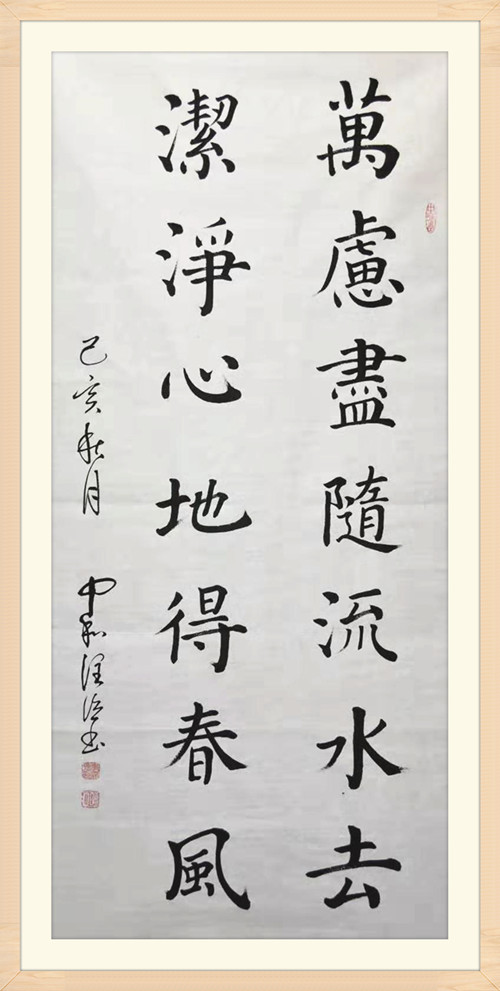 萬慮盡隨流水去
潔淨心地得春風
己亥秋月
中和
书